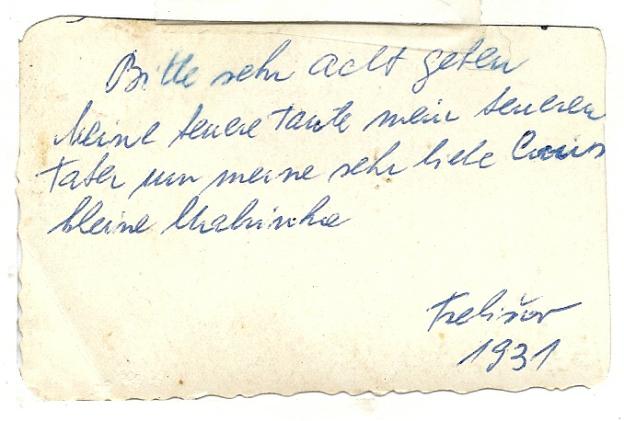 Bitte sehr acht geben
Meine teuere Tante mein teueren
Vater um meine sehr liebe
kleine
Trebišov
1931